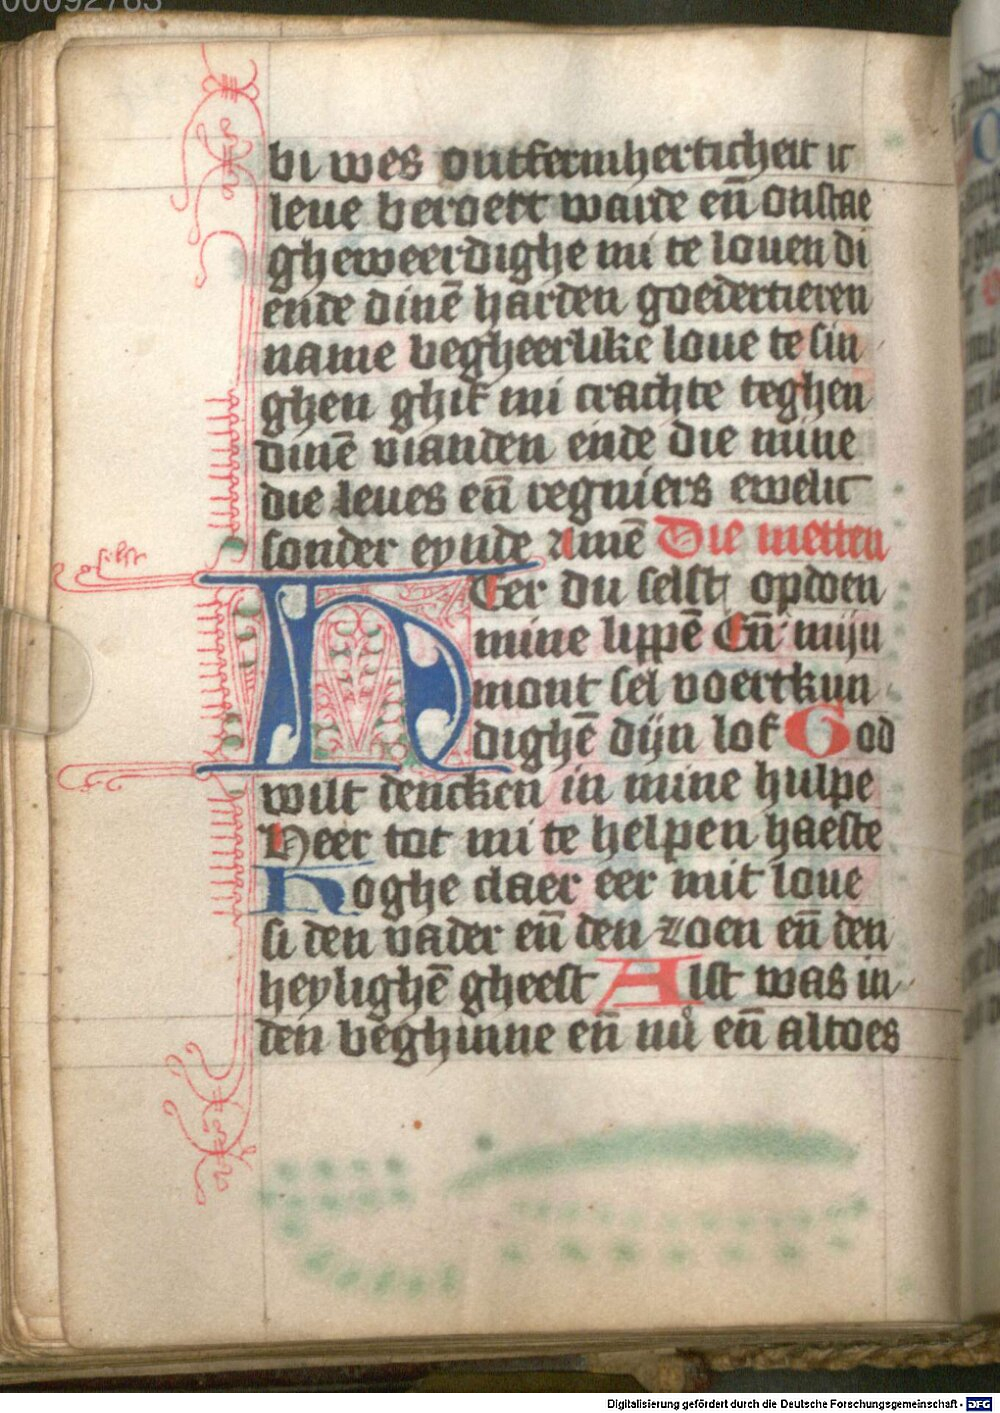 00092763
bi wes ontfermherticheit ic
leue beroert warde eñ onstae
gheweerdighe mi te louen di
ende dinē harden goedertieren
name begheerlike loue te sin
ghen ghif mi crachte teghen
dinē vianden ende die mine
die leues eñ regniers ewelic
sonder eynde amē Die metten
HEer du selst opdoen
mine lippē Eñ mijn
mont sel voertkun
dighē dijn lof God
wilt dencken in mine hulpe
Heer tot mi te helpen haeste
Hoghe daer eer mit loue
si den vader eñ den zoen eñ den
heylighē gheest Alst was in
den beghinne eñ nu eñ altoes
Digitalisierung gefördert durch die Deutsche Forschungsgemeinschaft - DFG